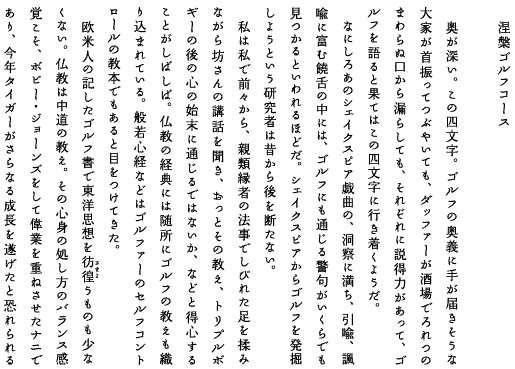 涅槃ゴルフコース
奥が深い。この四文字。ゴルフの奥義に手が届きそうな
大家が首振ってつぶやいても、ダッファーが酒場でろれつの
まわらぬ口から漏らしても、それぞれに説得力があって、ゴ
ルフを語ると果てはこの四文字に行き着くようだ。
なにしろあのシェイクスピア戯曲の、洞察に満ち、引喩、諷
喩に富む饒舌の中には、ゴルフにも通じる警句がいくらでも
見つかるといわれるほどだ。シェイクスピアからゴルフを発掘
しようという研究者は昔から後を断たない。
私は私で前々から、親類縁者の法事でしびれた足を揉み
ながら坊さんの講話を聞き、おっとその教え、トリプルボ
ギーの後の心の始末に通じるではないか、などと得心する
ことがしばしば。仏教の経典には随所にゴルフの教えも織
り込まれている。般若心経などはゴルファーのセルフコント
ロールの教本でもあると目をつけてきた。
欧米人の記したゴルフ書で東洋思想を彷徨うものも少な
くない。仏教は中道の教え。その心身の処し方のバランス感
覚こそ、ボビー・ジョーンズをして偉業を重ねさせたナニで
あり、今年タイガーがさらなる成長を遂げたと恐れられる